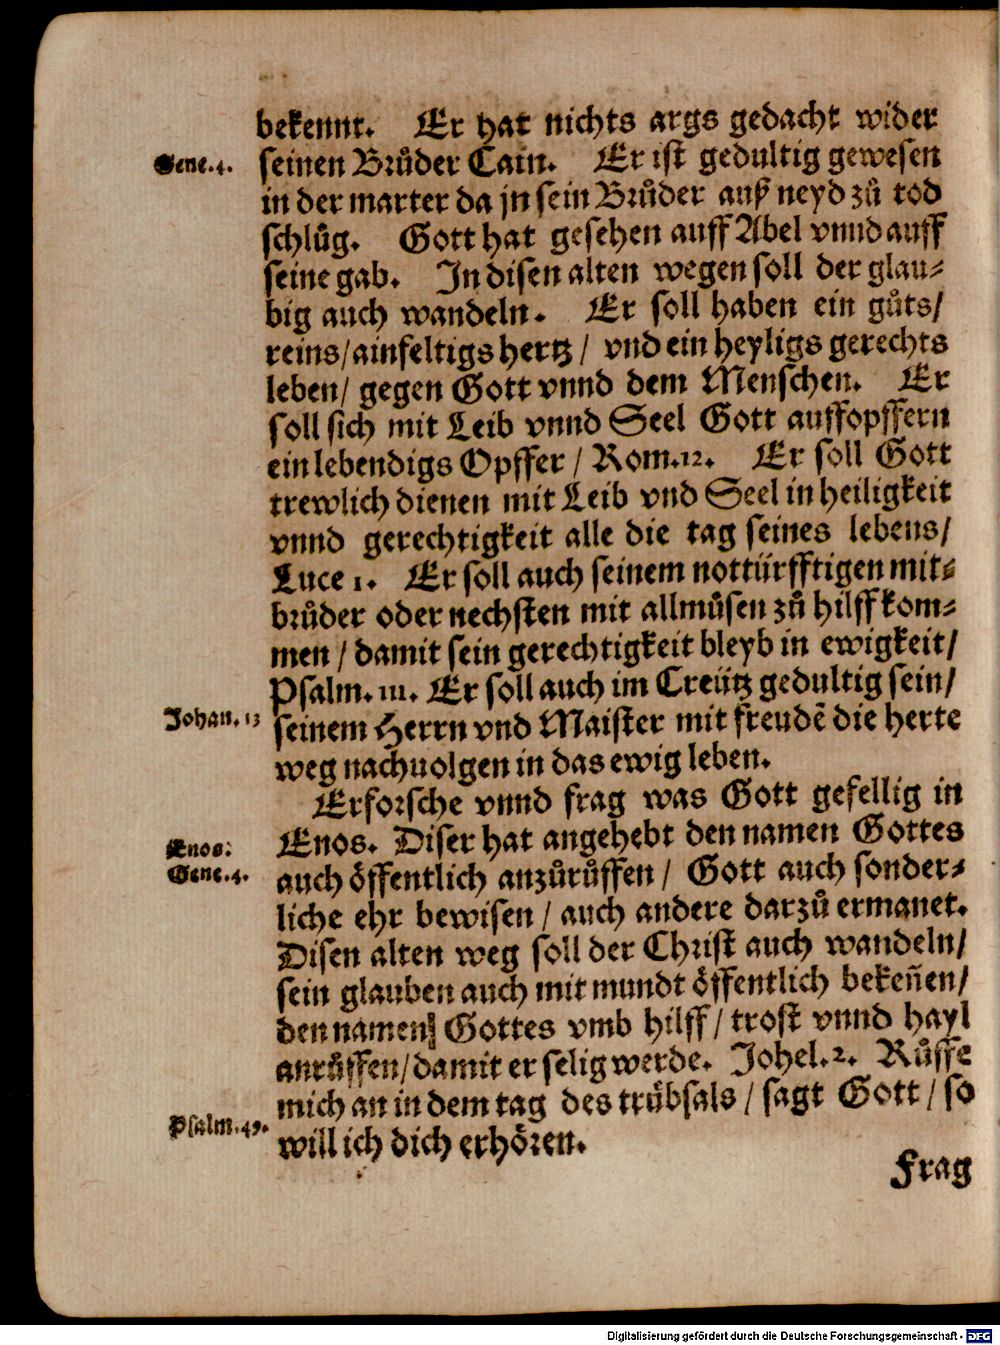 bekennt. Er hat nichts args gedacht wider
Gene.4. seinen Brůder Cain. Er ist gedultig gewesen
in der marter da jn sein Brůder auß neyd zů tod
schlůg. Gott hat gesehen auff Abel vnnd auff
seine gab. In disen alten wegen soll der glau⸗
big auch wandeln. Er soll haben ein gůts/
reins/ainfeltigs hertz/ vnd ein heyligs gerechts
leben/ gegen Gott vnnd dem Menschen. Er
soll sich mit Leib vnnd Seel Gott auffopffern
ein lebendigs Opffer/ Rom.12. Er soll Gott
trewlich dienen mit Leib vnd Seel in heiligkeit
vnnd gerechtigkeit alle die tag seines lebens/
Luce 1. Er soll auch seinem nottürfftigen mit⸗
brůder oder nechsten mit allmůsen zů hilff kom⸗
men/ damit sein gerechtigkeit bleyb in ewigkeit/
Psalm.111. Er soll auch im Creütz gedultig sein/
Johan.13 seinem Herrn vnd Maister mit freudē die herte
weg nachuolgen in das ewig leben.
Erforsche vnnd frag was Gott gefellig in
Enos: Enos. Diser hat angehebt den namen Gottes
Gene.4. auch öffentlich anzůrůffen/ Gott auch sonder⸗
liche ehr bewisen/ auch andere darzů ermanet.
Disen alten weg soll der Christ auch wandeln/
sein glauben auch mit mundt öffentlich bekeñen/
den namen Gottes vmb hilff/ trost vnnd hayl
anrůffen/damit er selig werde. Johel.2. Růffe
mich an in dem tag des trübsals/ sagt Gott/ so
Psalm.49. will ich dich erhören.
Frag
Digitalisierung gefördert durch die Deutsche Forschungsgemeinschaft - DFG